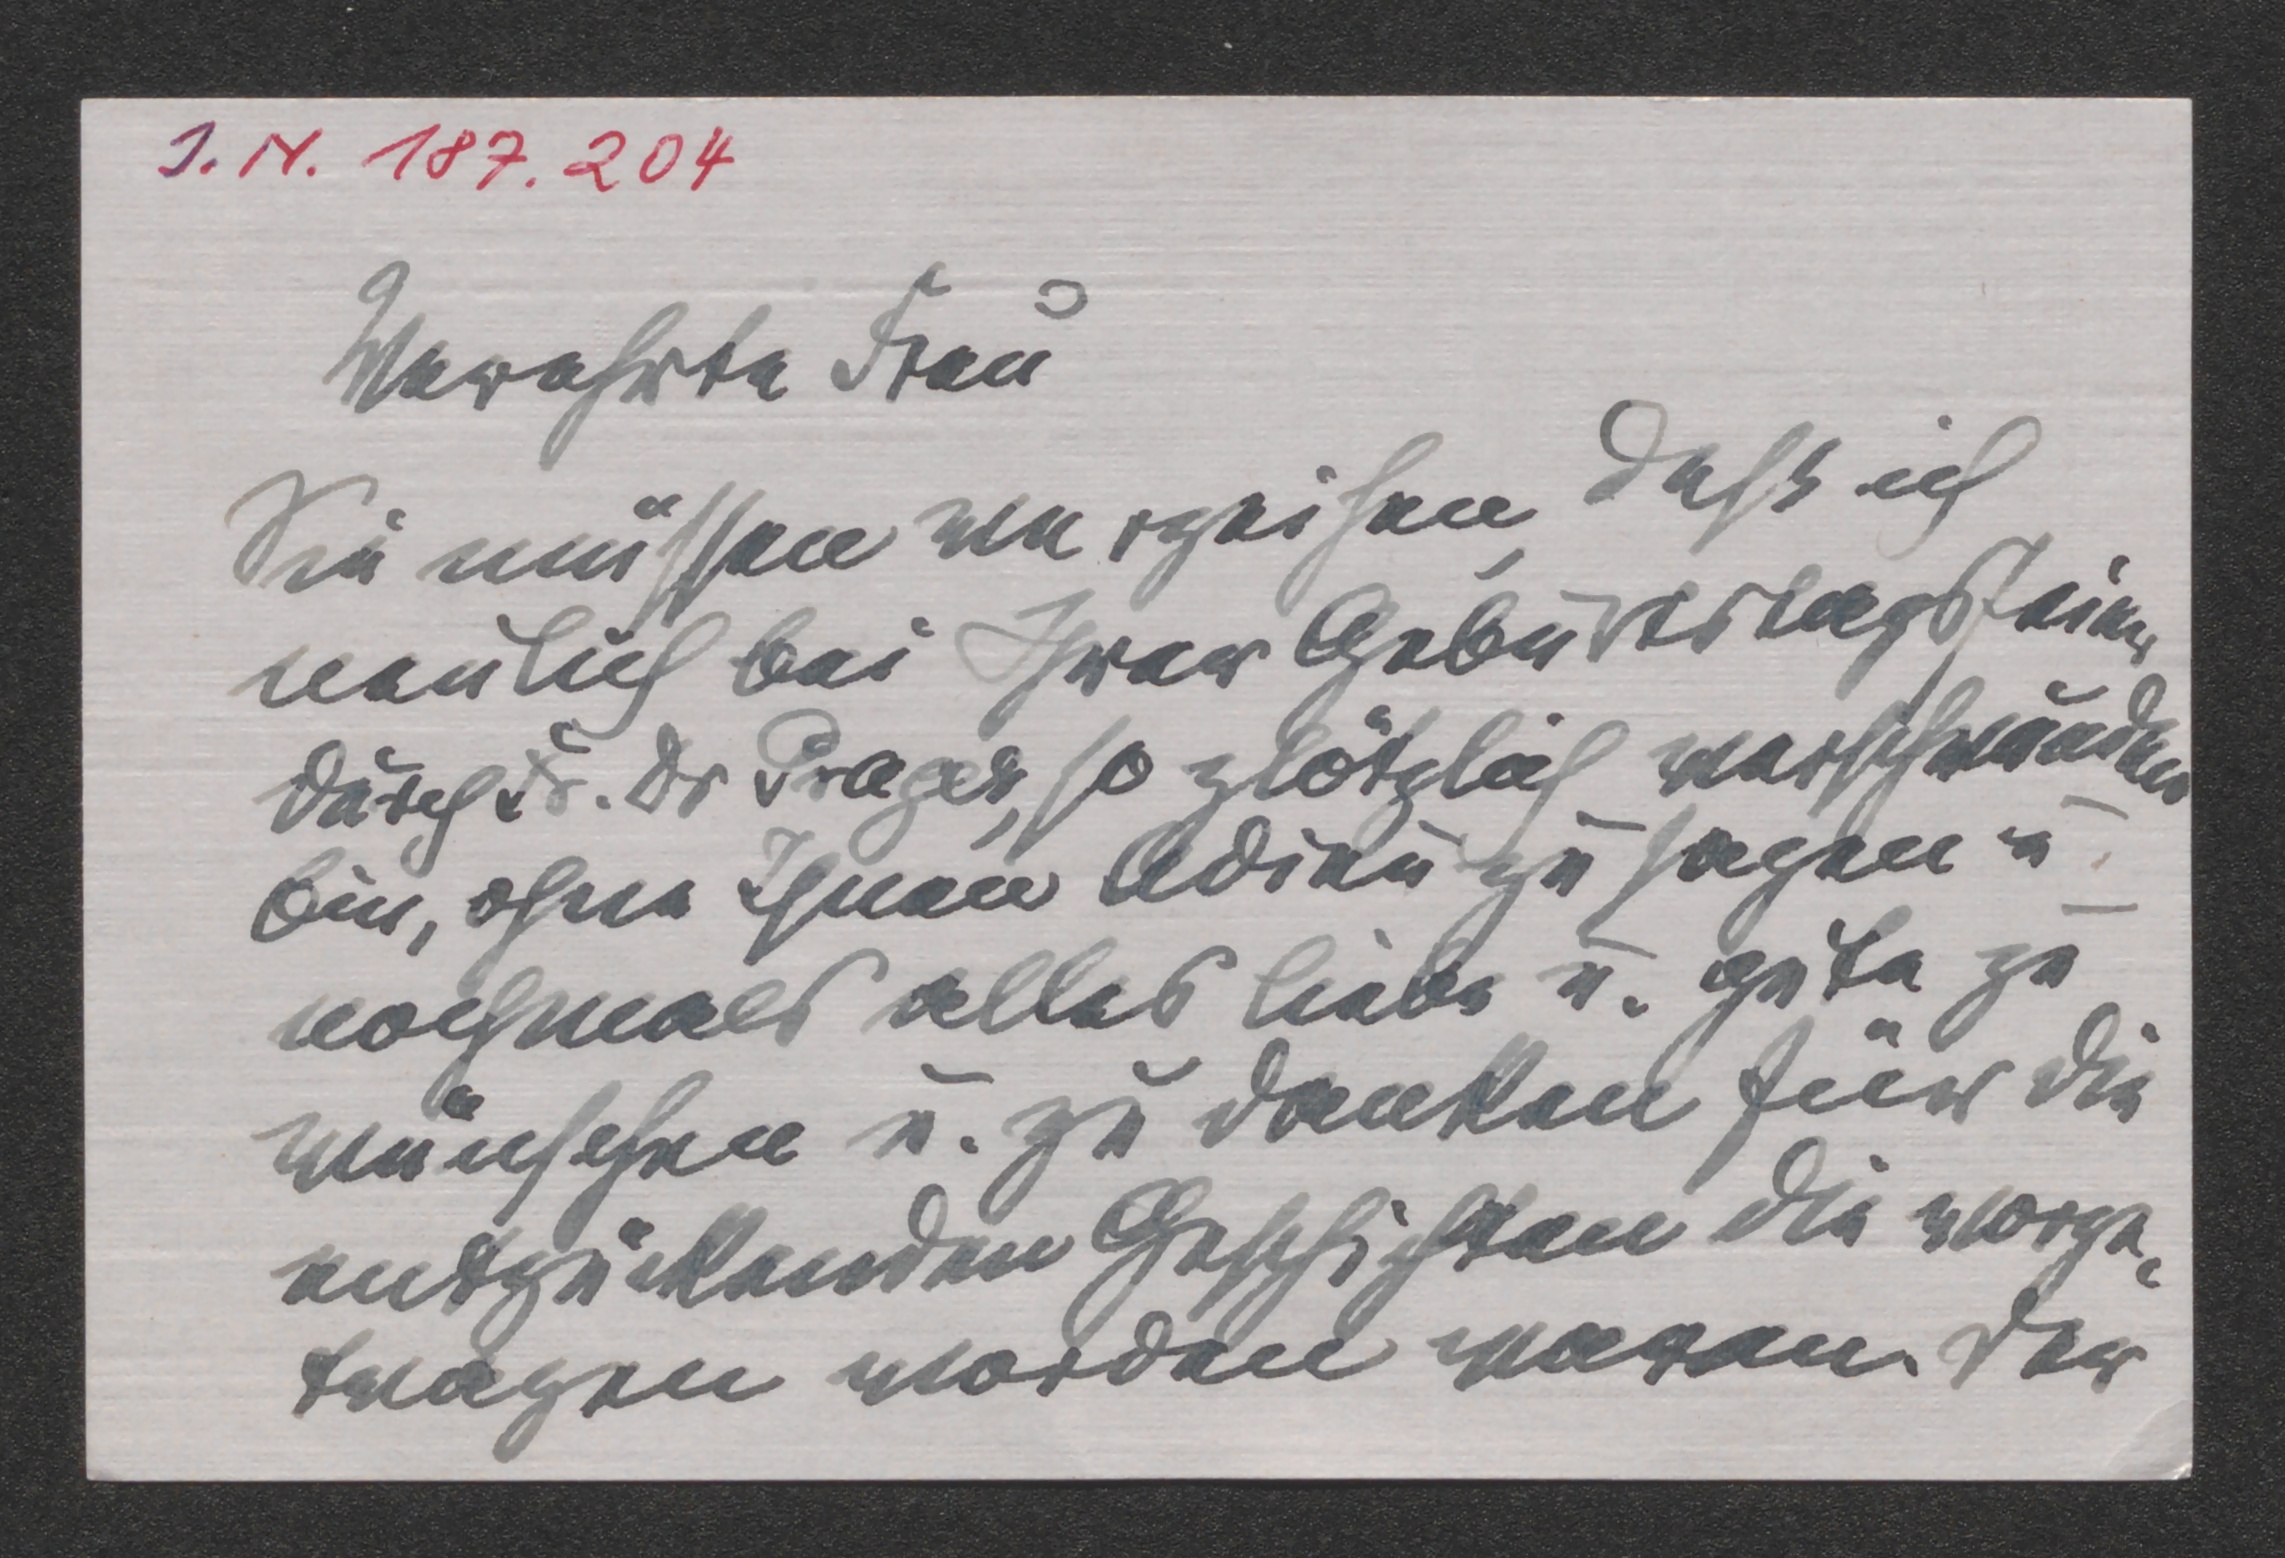 I. N. 187.204
Verehrte Frau
Sie müssen verzeihen, dass ich
neulich bei Ihrer Geburtstagsfeier,
durch Fr. Dr Prager, so plötzlich verschwunden
bin, ohne Ihnen Adieu zu sagen u
nochmals alles liebe u. gute zu
wünschen u. zu danken für die
entzückenden Geschichten die vorge-
tragen worden waren. Der